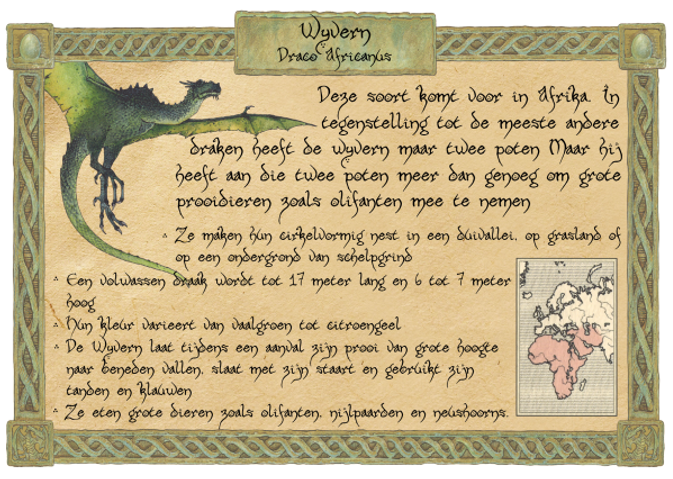 Wyvern
Draco Africanus
Deze soort komt voor in Afrika. In
tegenstelling tot de meeste andere
draken heeft de wyvern maar twee poten Maar hij
heeft aan die twee poten meer dan genoeg om grote
prooidieren zoals olifanten mee te nemen
∴ Ze maken hun cirkelvormig nest in een duivallei, op grasland of
op een ondergrond van schelpgrind
∴ Een volwassen draak wordt tot 17 meter lang en 6 tot 7 meter
hoog
∴ Hun kleur varieert van vaalgroen tot citroengeel
∴ De Wyvern laat tijdens een aanval zijn prooi van grote hoogte
naar beneden vallen, slaat met zijn staart en gebruikt zijn
tanden en klauwen
∴ Ze eten grote dieren zoals olifanten, nijlpaarden en neushoorns.